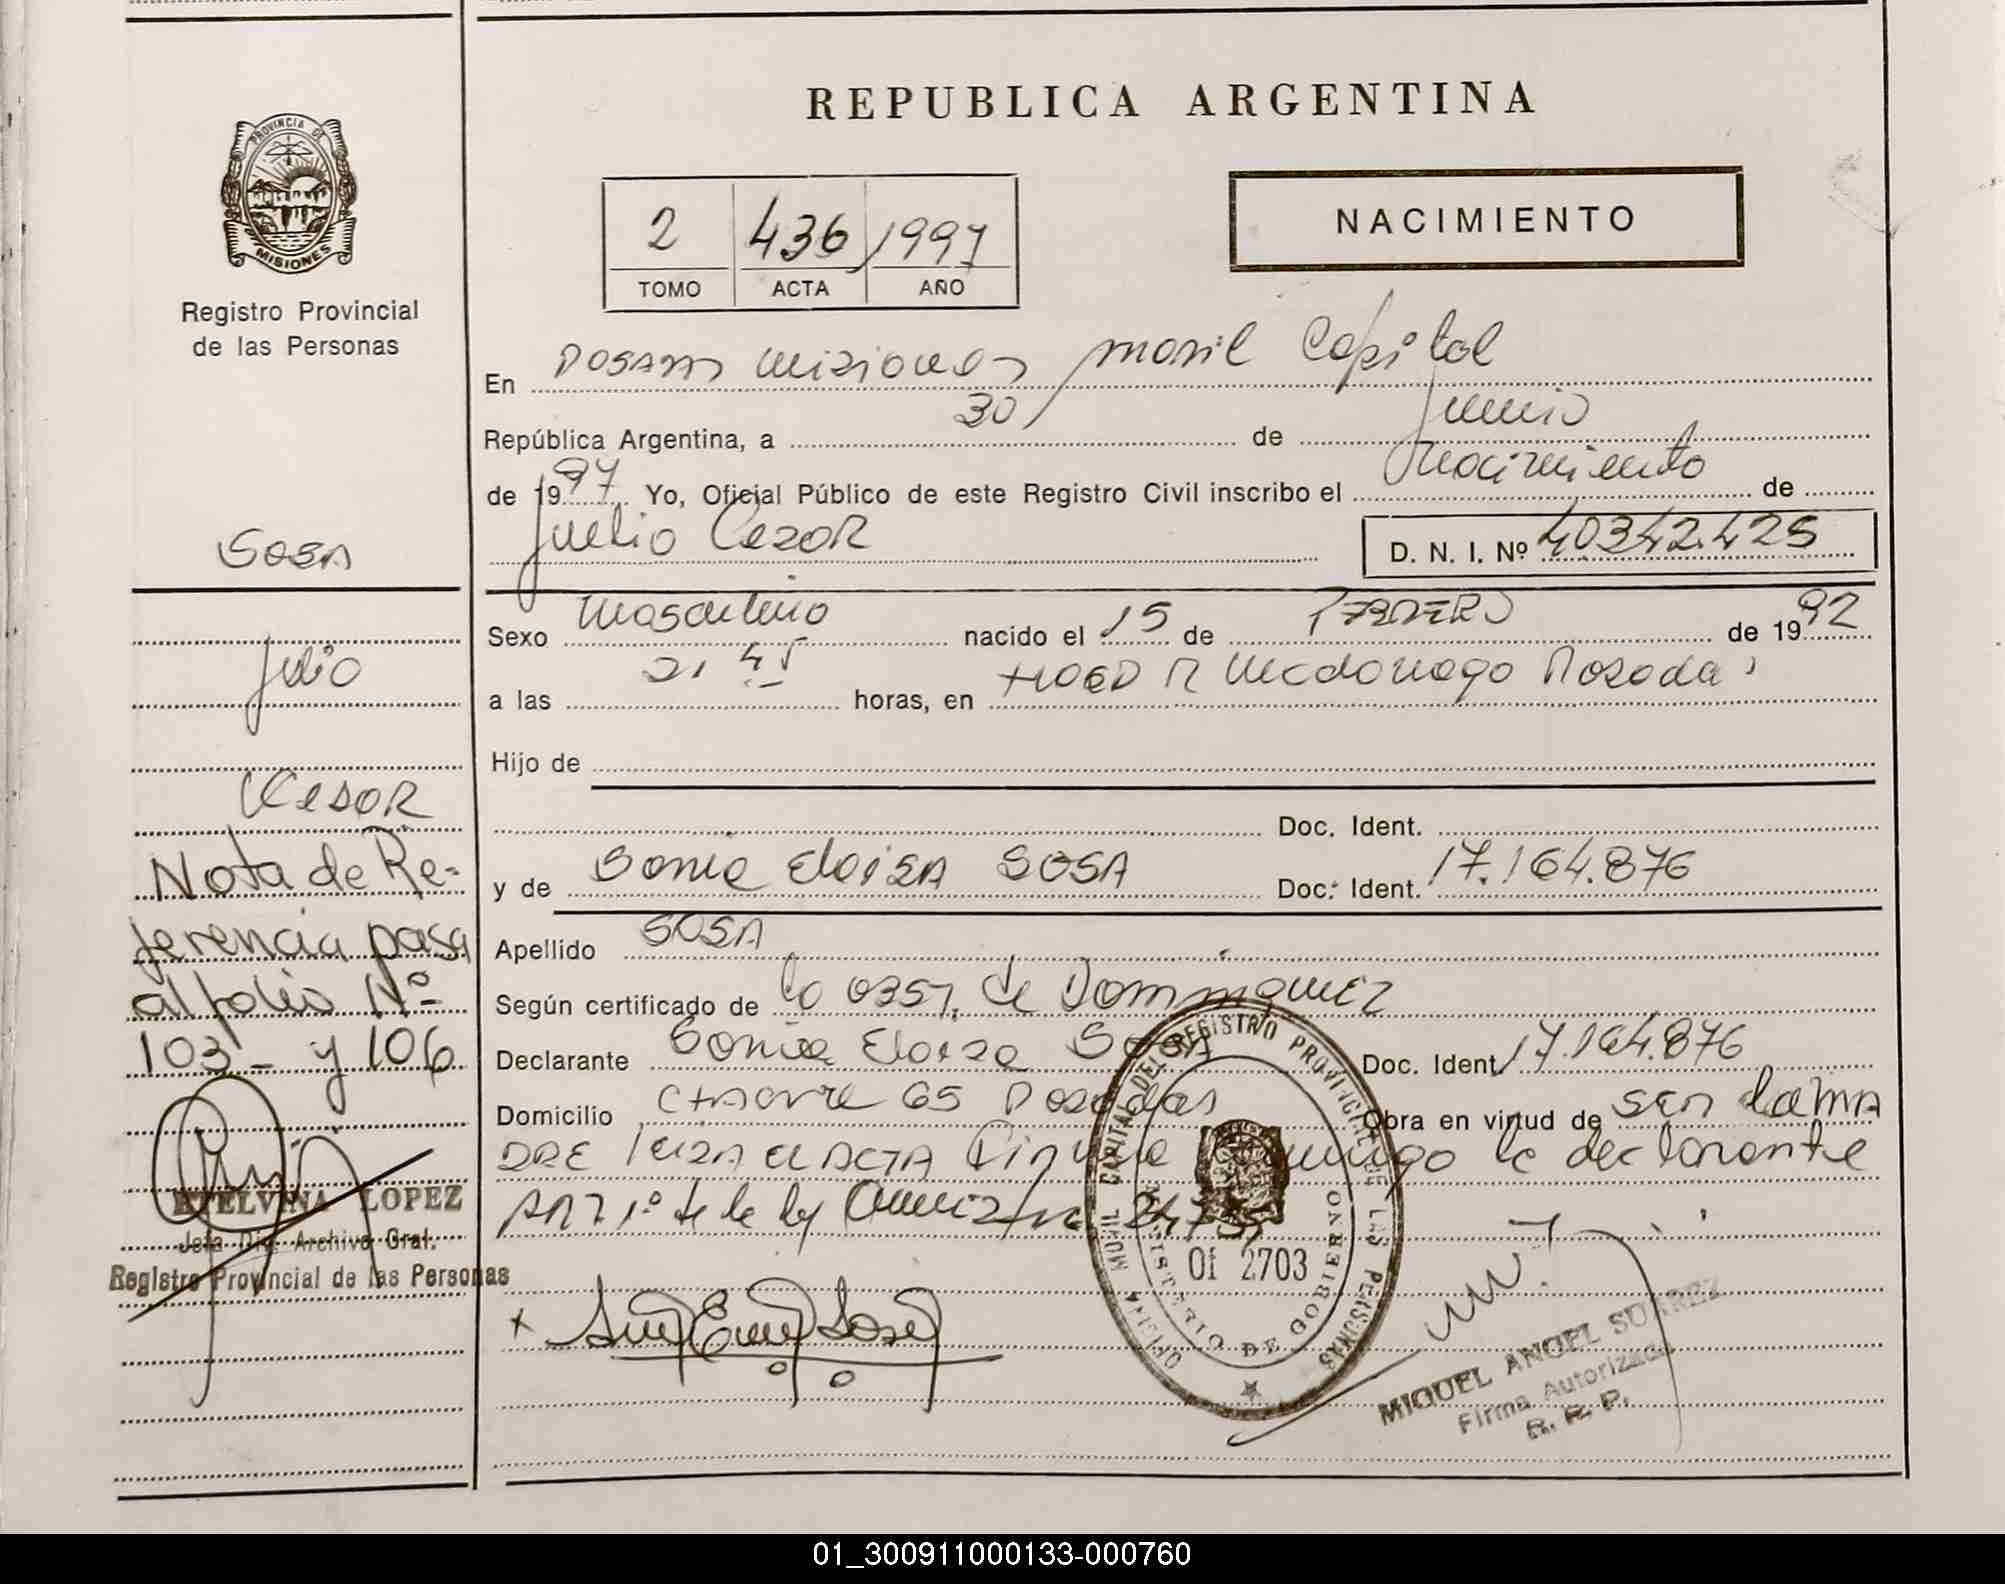 REPUBLICA ARGENTINA
PROVINCIA DE
MISIONES
Registro Provincial
de las Personas
2 436 1997
TOMO ACTA AÑO
NACIMIENTO
En Posadas Misiones movil Capital
República Argentina, a 30 de Junio
de 1997 Yo, Oficial Público de este Registro Civil inscribo el Nacimiento de
Julio Cesar
D. N. I. Nº 40.342.425
Sexo Masculino nacido el 15 de FEBRERO de 1992
a las 21 45 horas, en Posadas
Hijo de
Doc. Ident.
y de Sonia Eloisa SOSA Doc. Ident. 17.164.876
Apellido SOSA
Según certificado de la obst. de Dominguez
Declarante Sonia Eloisa Sosa Doc. Ident. 17.164.876
Domicilio 65 Posadas Obra en virtud de ser la MA
DRE leida el ACTA conmigo la declarante
ART 1º de la ley
SOSA
Julio
Cesar
Nota de Re-
ferencia pasa
al folio Nº
103 - y 106
ETELVINA LOPEZ
Jefa Div. Archivo Gral.
Registro Provincial de las Personas
OFICINA MOVIL CAPITAL DEL REGISTRO PROVINCIAL DE LAS PERSONAS
MINISTERIO DE GOBIERNO
01 2703
MIGUEL ANGEL SUAREZ
Firma Autorizada
R. P. P.
01_300911000133-000760